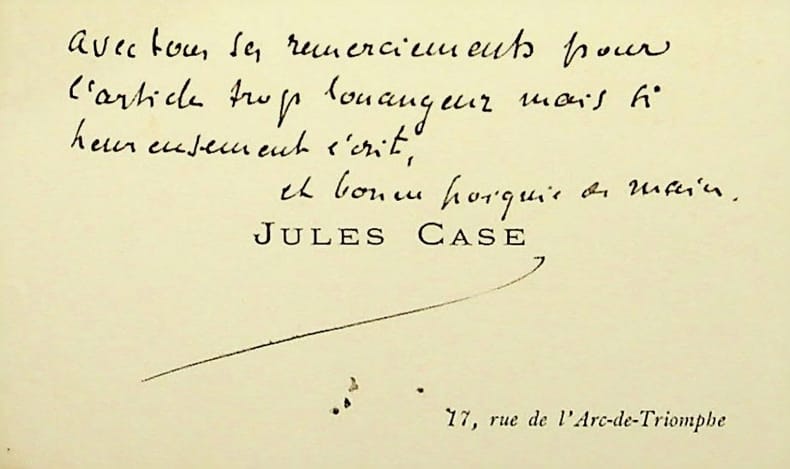 avec tous ses remerciements pour
l'article trop louangeur mais si
heureusement écrit,
et bonne poignée de main.
JULES CASE
17, rue de l'Arc-de-Triomphe